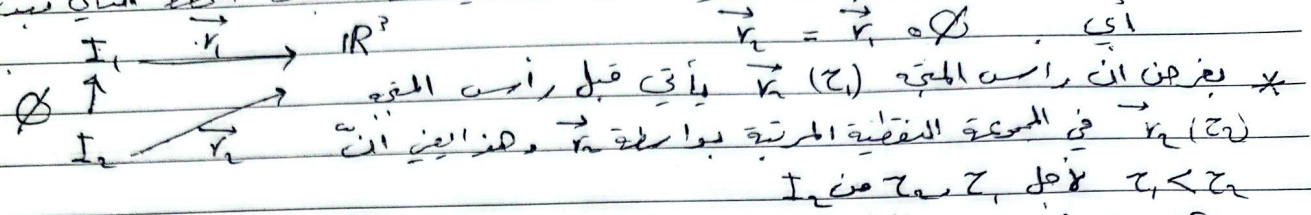 أي . r₂ = r₁ ∘ ∅
I₁ r₁ IR³
∅
I₂ r₂
* بفرض ان راس المتجه r₂(τ₁) يأتي قبل رأس المتجه
r₂(τ₂) في المجموعة النقطية المرتبة بواسطة r₂ وهذا يعني انّ
τ₁ < τ₂ لأجل τ₁ و τ₂ من I₂